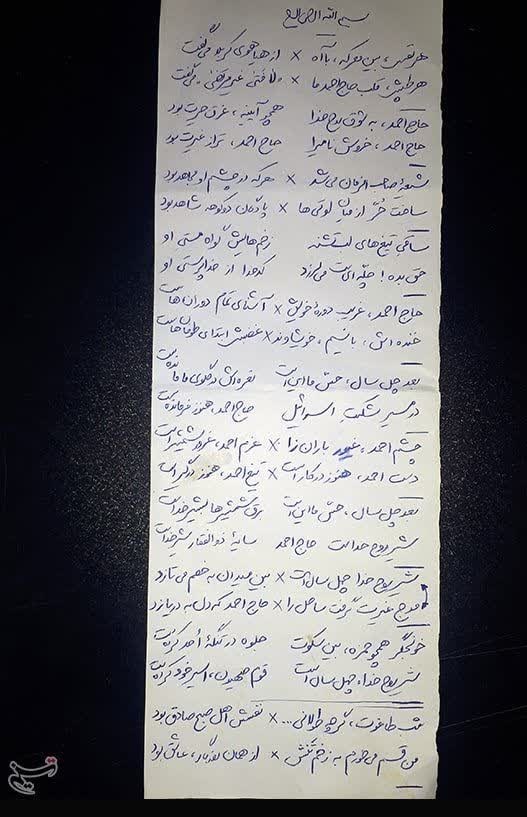 بسم الله الرحمن الرحیم
هر نفس، بین معرکه، با آه × از هیاهوی کربلا می‌گفت
هر طپش، قلب حاج احمد ما × می‌گفت
حاج احمد، به شوق روح خدا همچو آیینه، غرق حیرت بود
حاج احمد، خروش نامیرا حاج احمد، تراز غیرت بود
شیعهٔ صاحب الزمان می‌شد × هر که در چشم او مجاهد بود
ساخت حُرّ از میان لوتی‌ها × پادگان دوکوهه شاهد بود
ساقی تیغ‌های لب تشنه زخم‌هایش گواه مستی او
حق بده! چلّه‌ای‌ست می‌لرزد کدخدا از خداپرستی او
حاج احمد، غریب دورهٔ خویش × آشنای تمام دوران‌هاست
خنده‌اش، با نسیم، خویشاوند × غضبش ابتدای طوفان‌هاست
بعد چل سال، حسّ ما این است نعره‌اش در گلوی ما مانده‌ست
در مسیر شکست اسرائیل حاج احمد، هنوز فرمانده‌ست
چشم احمد، غیور باران‌زا × عزم احمد، غرور شمشیر است
دست احمد، هنوز در کار است × تیغ احمد، هنوز درگیر است
بعد چل سال، حسّ ما این است برق شمشیرها
شیر روح خداست حاج احمد سایهٔ ذوالفقار شیر خداست
شیر روح خدا چهل سال است × بین میدان به خصم می‌تازد
موج غیرت گرفت ساحل را × حاج احمد که دل به دریا زد
خون‌جگر همچو حمزه، بین سکوت جلوه در تنگهٔ اُحد کرده‌ست
شیر روح خدا، چهل سال است قوم صهیون، اسیر خود کرده‌ست
شب طاغوت، گرچه طولانی... × نفسش اهل صبح صادق بود
من قسم می‌خورم به زخم تنش × از همان روزگار، عاشق بود
تسنیم